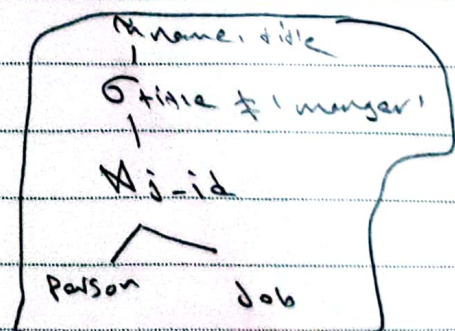 π name, title
σ title ≠ 'manger'
⋈ j-id
person job